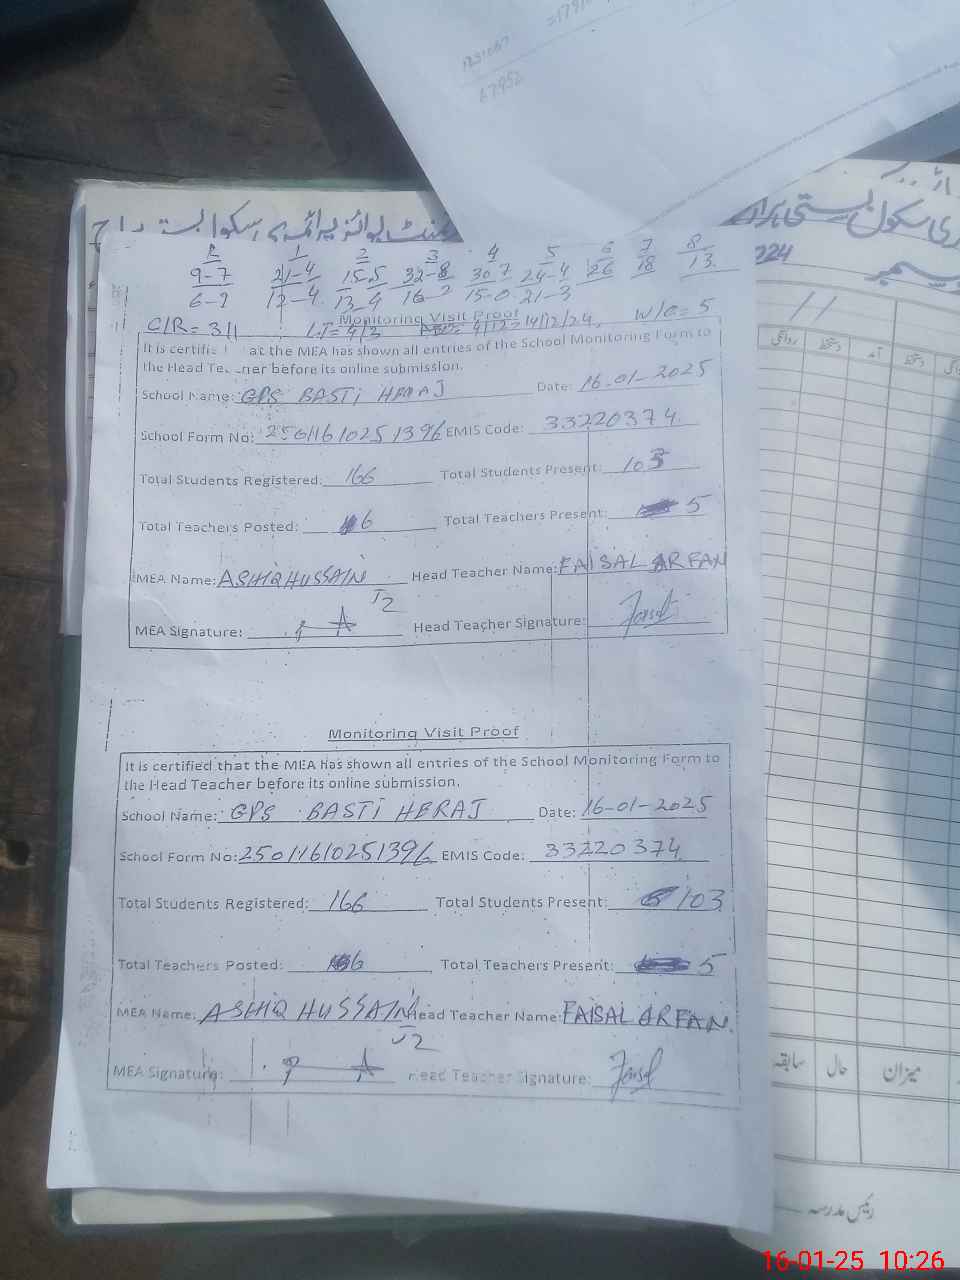 1231087
67952
ری سکول بستی ہراج
224
دسمبر
1 2 3 4 5 6 7 8
9-7 21-4 15-5 32-8 30-7 24-4 26 18 13
6-2 12-4 13-4 16-2 15-0 21-3
Monitoring Visit Proof
C/R = 311 L.T= 4/3 4/12 > 14/12/24, W/C= 5
It is certifie at the MEA has shown all entries of the School Monitoring Form to
the Head Te ner before its online submission.
School Name: GPS BASTI HERAJ Date: 16-01-2025
School Form No: 25011610251396 EMIS Code: 33220374
Total Students Registered: 166 Total Students Present: 103
Total Teachers Posted: 6 Total Teachers Present: 5
MEA Name: ASHIQ HUSSAIN Head Teacher Name: FAISAL ARFAN
J2
MEA Signature: Head Teacher Signature: Faisal
Monitoring Visit Proof
It is certified that the MEA has shown all entries of the School Monitoring Form to
the Head Teacher before its online submission.
School Name: GPS BASTI HERAJ Date: 16-01-2025
School Form No: 25011610251396 EMIS Code: 33220374
Total Students Registered: 166 Total Students Present: 103
Total Teachers Posted: 6 Total Teachers Present: 5
MEA Name: ASHIQ HUSSAIN Head Teacher Name: FAISAL ARFAN.
J2
MEA Signature: Head Teacher Signature: Faisal
دستخط آمد دستخط روانگی
میزان حال سابقہ
رئیس مدرسہ
16-01-25 10:26